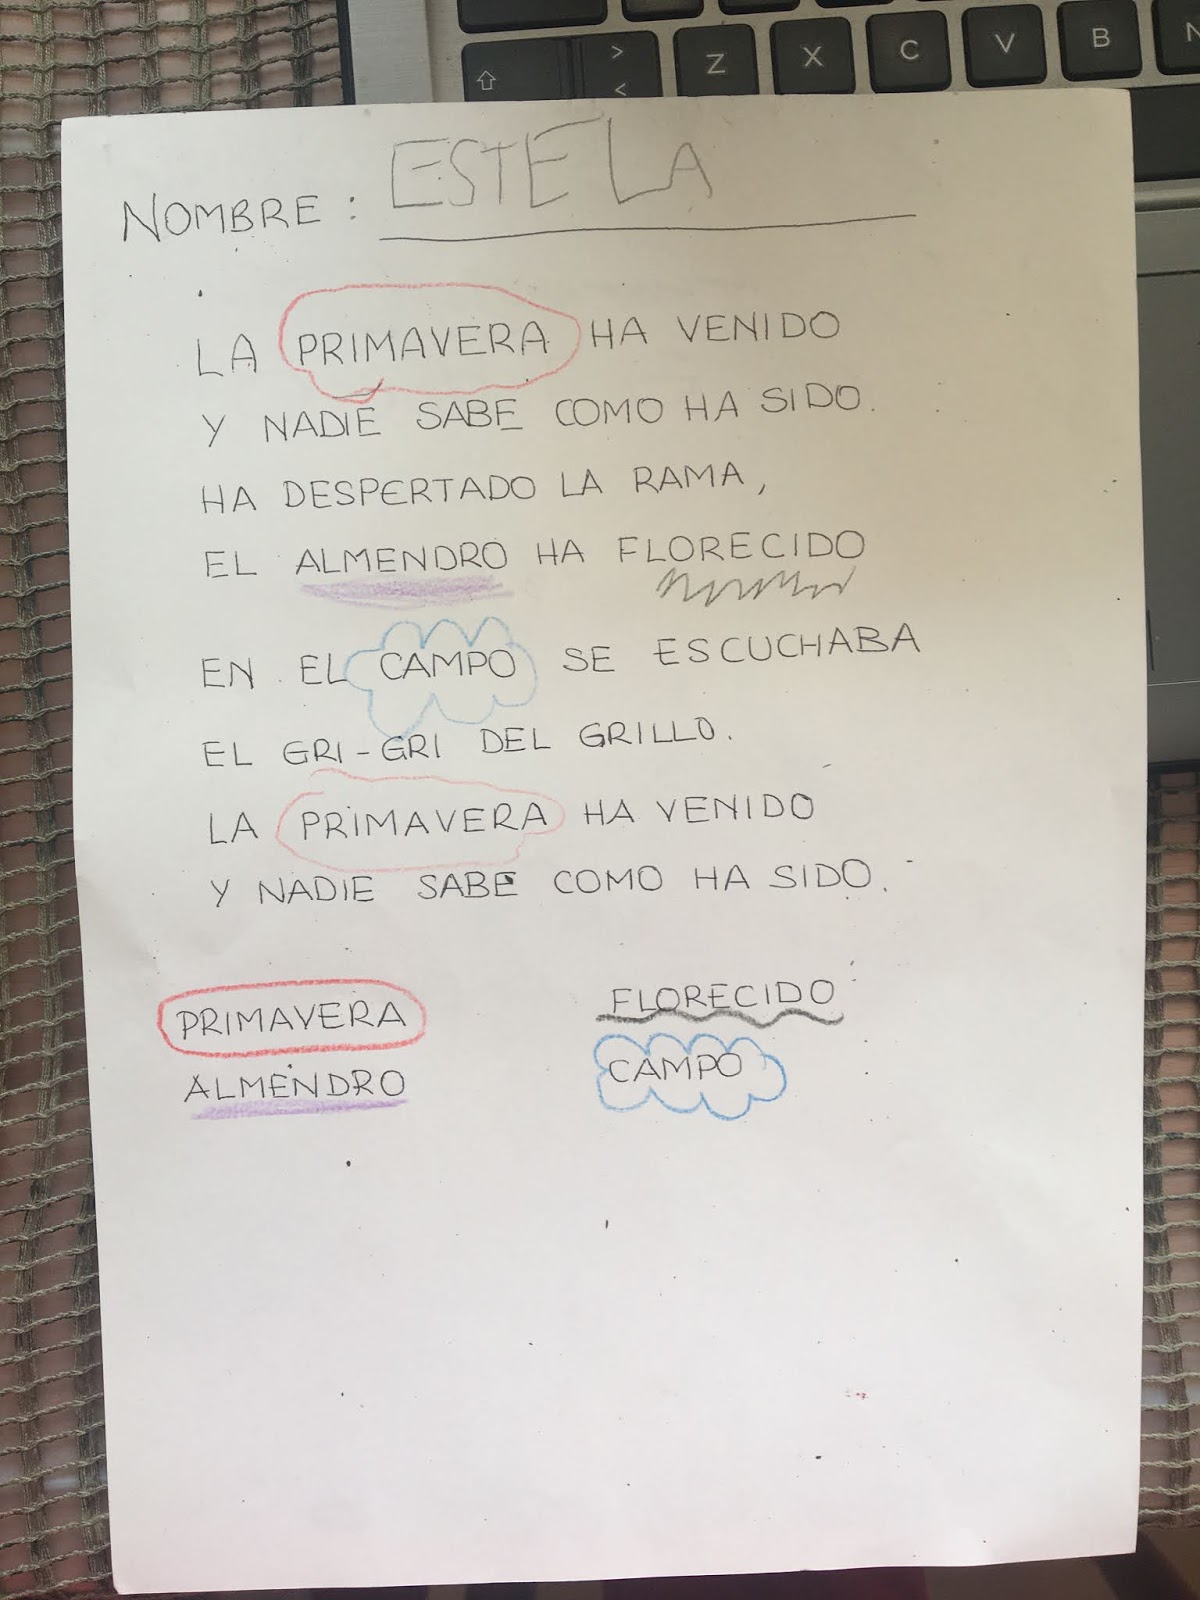 > Z X C V B N
<
NOMBRE: ESTELA
LA PRIMAVERA HA VENIDO
Y NADIE SABE COMO HA SIDO.
HA DESPERTADO LA RAMA,
EL ALMENDRO HA FLORECIDO
EN EL CAMPO SE ESCUCHABA
EL GRI-GRI DEL GRILLO.
LA PRIMAVERA HA VENIDO
Y NADIE SABE COMO HA SIDO.
PRIMAVERA FLORECIDO
ALMENDRO CAMPO